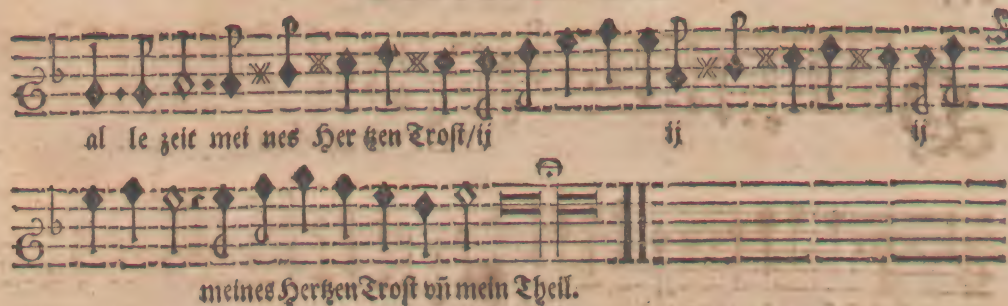 al le zeit mei nes Her tzen Trost/ij ij ij
meines Hertzen Trost vñ mein Theil.